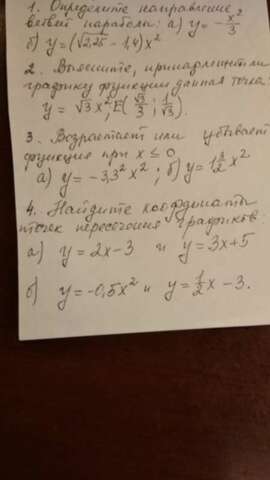 1. Определите направление
ветвей параболы: а) y = -x²/3
б) y = (√2,25 - 1,4) x²
2. Выясните, принадлежит ли
графику функции данная точка:
y = √3 x²; E(√3/3; 1/√3).
3. Возрастает или убывает
функция при x ≤ 0
а) y = -3,3² x²; б) y = 1 1/2 x²
4. Найдите координаты
точек пересечения графиков:
а) y = 2x - 3 и y = 3x + 5
б) y = -0,5x² и y = 1/2 x - 3.